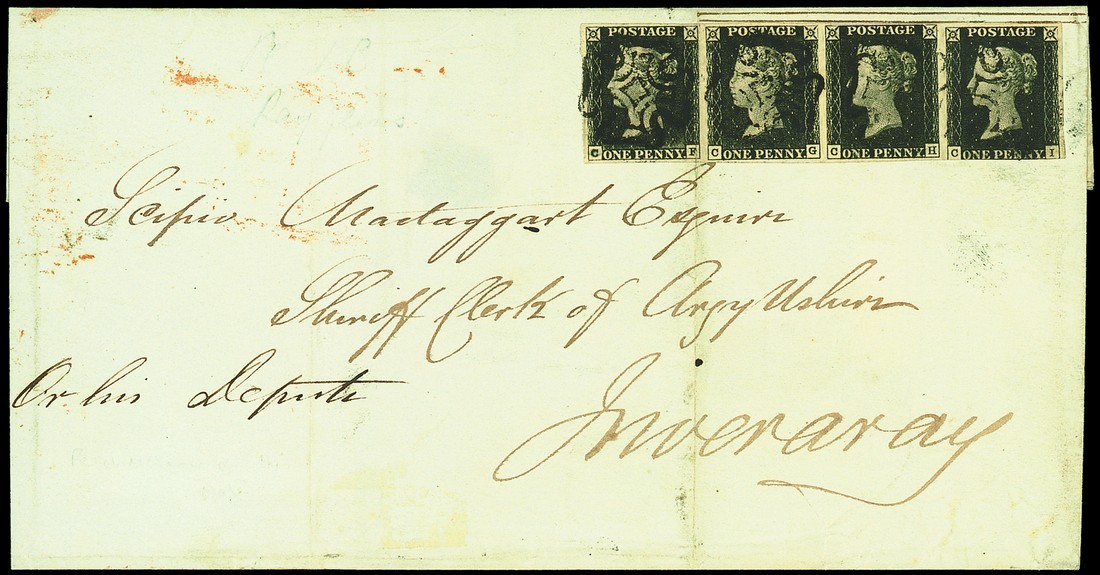 POSTAGE POSTAGE POSTAGE POSTAGE
C ONE PENNY F C ONE PENNY G C ONE PENNY H C ONE PENNY I
Scipio Mactaggart Esquire
Sheriff Clerk of Argyllshire
Or his Depute
Inveraray